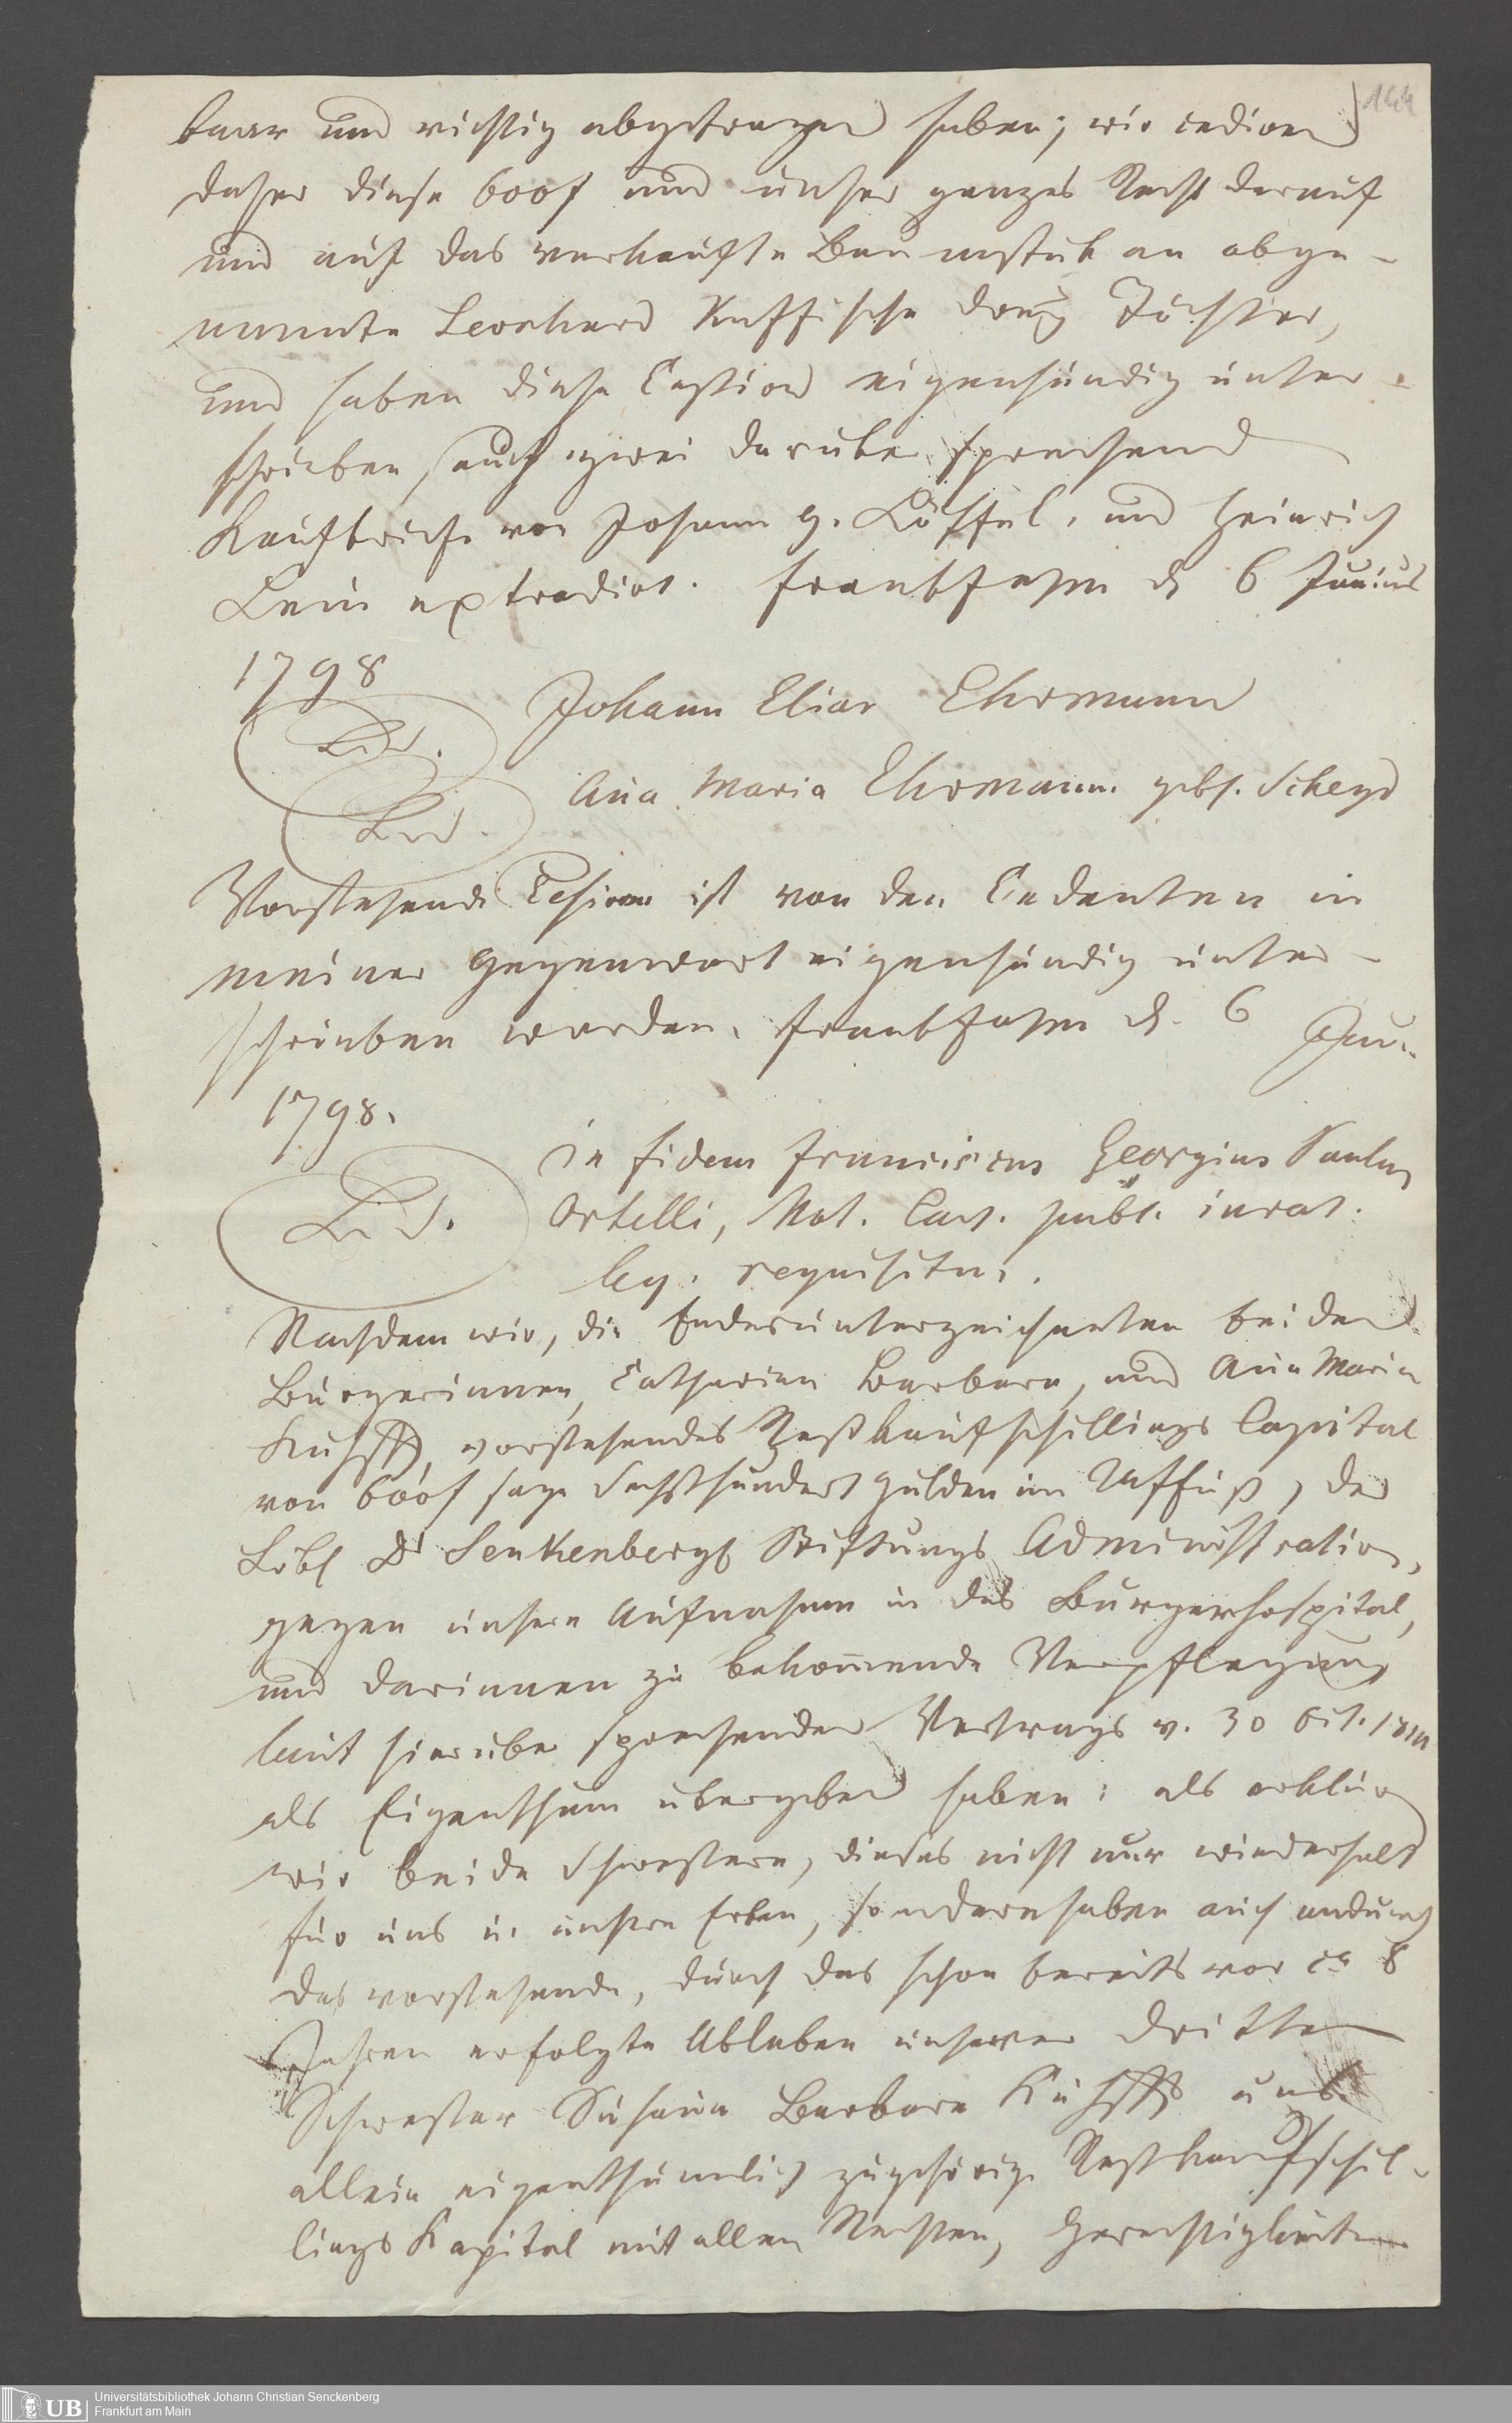 144
baar und richtig abgetragen haben; wir cediren
daher diese 600f und unser ganzes Recht darauf
und auf das verkaufte Baumstük an obge-
nannte Leonhard Kuffische drey Töchter,
und haben diese Cession eigenhändig unter-
schrieben, auch zwei daruber sprechend
Kaufbriefe von Johann G. Löffel, und Heinrich
Lein extradirt. Frankf a/m d 6 Junius
1798
L. S. Johann Elias Ehrmann
L. S. Ana Maria Ehrmann. gebs. Scheyd
Vorstehende Cession ist von den Cedenten in
meiner Gegenwart eigenhändig unter-
schrieben worden. Frankf a/m d. 6 Jun.
1798.
in fidem Franciscus Georgius Paulus
L. S. Ortelli, Not. Caes. publ. iurat.
leg. requisitus.
Nachdem wir, die Endesunterzeichneten beiden
Burgerinnen, Catharina Barbara, und Ana Maria
Kuhff, vorstehendes Restkaufschillings Capital
von 600f sage Sechshundert Gulden im Fuß, der
Löbl Dr Senkenbergs Stiftungs Administration,
gegen unsere Aufnahme in das Burgerhospital,
und darinnen zu bekommende Verpflegung
laut hieruber sprechenden Vertrags v. 30 Oct.
als Eigenthum ubergeben haben: als erklären
wir beide Schwestern, dieses nicht nur wiederholt
für uns u. unsere Erben, sondern haben auch andurch
das vorstehende, durch das schon bereits vor ca 8
Jahren erfolgte Ableben unserer dritten
Schwester Susana Barbara Kuhff uns
allein eigenthümlich zugehörige Restkaufschil-
lings Kapital mit allen Rechten, Gerechtigkeiten
UB
Universitätsbibliothek Johann Christian Senckenberg
Frankfurt am Main